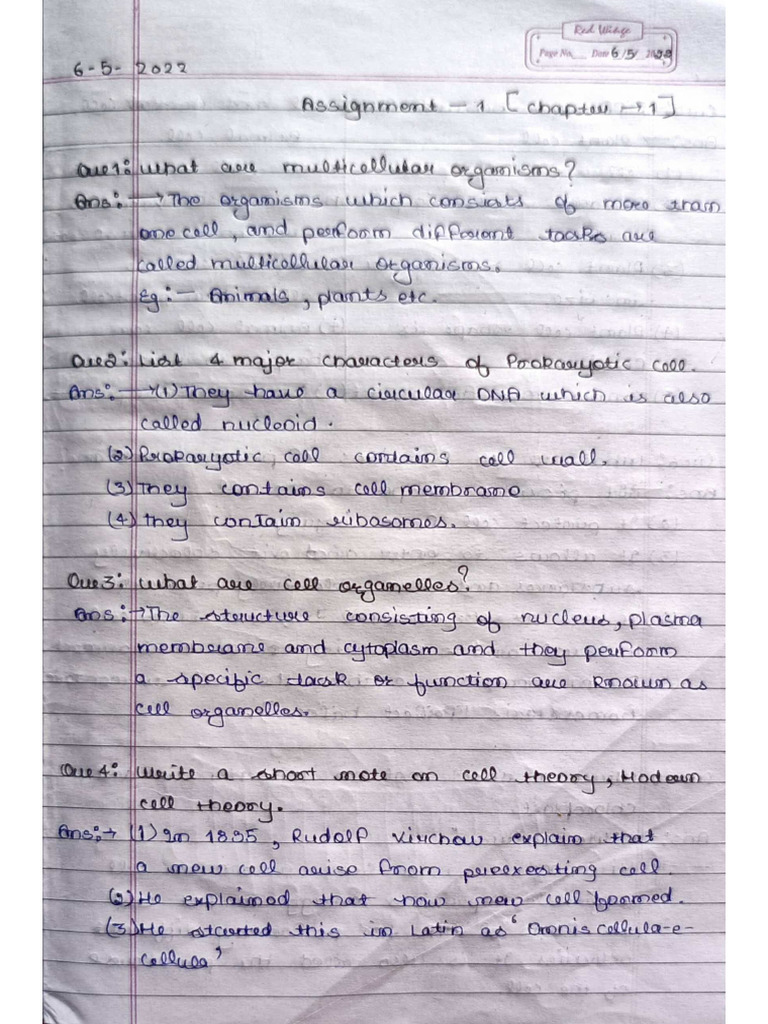 Red Widge
Page No. Date 6/5/2022
6-5-2022
Assignment - 1 [Chapter → 1]
Que1: What are multicellular organisms?
Ans:- → The organisms which consists of more than
one cell, and perform different tasks are
called multicellular organisms.
Eg:- Animals, plants etc.
Que2: List 4 major characters of Prokaryotic cell.
Ans:- → (1) They have a circular DNA which is also
called nucleoid.
(2) Prokaryotic cell contains cell wall.
(3) They contains cell membrane
(4) they contain ribosomes.
Que3: What are cell organelles?
Ans:- → The structure consisting of nucleus, plasma
membrane and cytoplasm and they perform
a specific task or function are known as
cell organelles.
Que4: Write a short note on cell theory, Modern
cell theory.
Ans:- → (1) In 1855, Rudolf Virchow explain that
a new cell arise from preexesting cell.
(2) He explained that how new cell formed.
(3) He started this in Latin as 'Omnis cellula-e-
cellula'